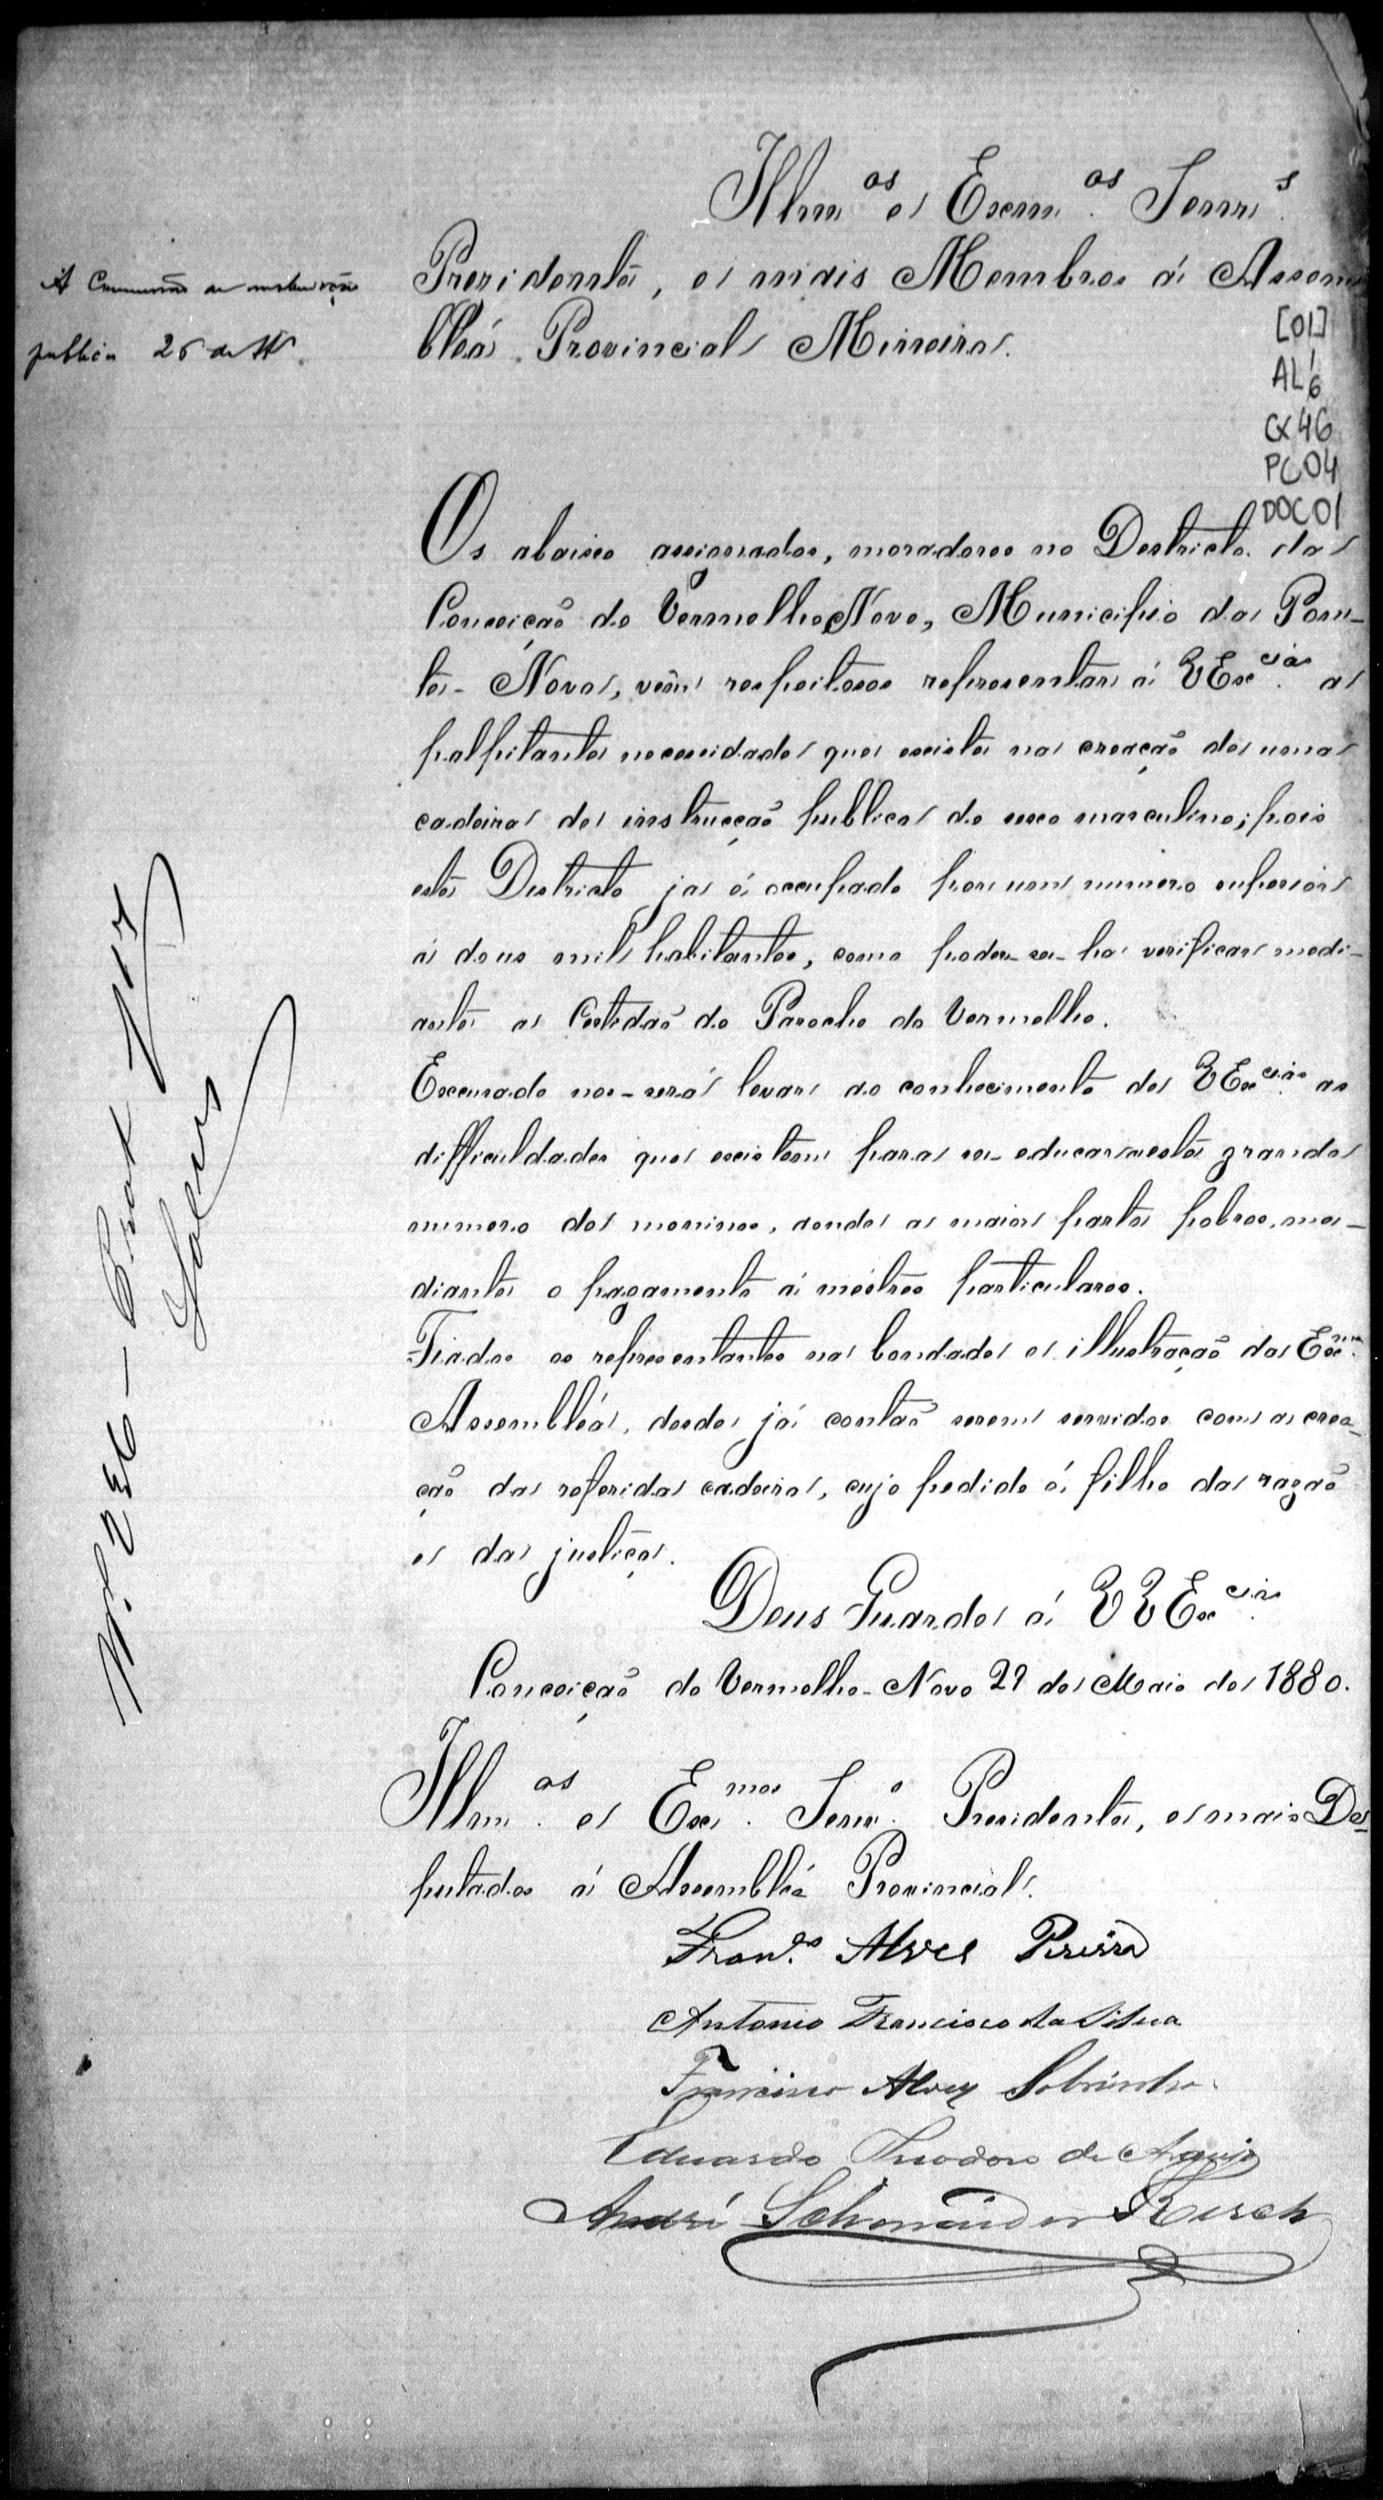 Illm.os e Excm.os Senrs.
Presidente, e mais Membros á Assem
bléa Provincial Mineira.
A Commissão de instrucção
publica 26 de
[01]
AL 6
CX 46
PC 04
DOC 01
Os abaixo assignados, moradores no Destricto da
Conceição do Vermelho Novo, Municipio da Pon-
te-Nova, vêm respeitosos representar á VVExcias. a
palpitante necessidade que existe na creação de uma
cadeira de instrucção publica do sexo masculino; pois
este Destricto já é occupado por um numero superior
á dous mil habitantes, como poder-se-ha verificar medi-
ante a Certidão do Parocho do Vermelho.
Excusado nos-será levar ao conhecimento de VVExcias. as
difficuldades que existem para se-educar neste grande
numero de meninos, sendo a maior parte pobres, me-
diante o pagamento á méstres particulares.
Fiados os representantes na bondade e illustração da Exma.
Assembléa, desde já contão serem servidos com a crea-
ção da referida cadeira, cujo pedido é filho da razão
e da justiça.
Deus Guarde á VVExcias.
Conceição do Vermelho-Novo 22 de Maio de 1880.
Illm.os e Exc.mos Senr.o Presidente, e mais De-
putados á Assembléa Provincial.
Fran.co Alves Pereira
Antonio Francisco da Silva
Francisco Alves Sobrinho
Eduardo Theodoro de Araujo
André Schoneider Kersch
N.º 256 —